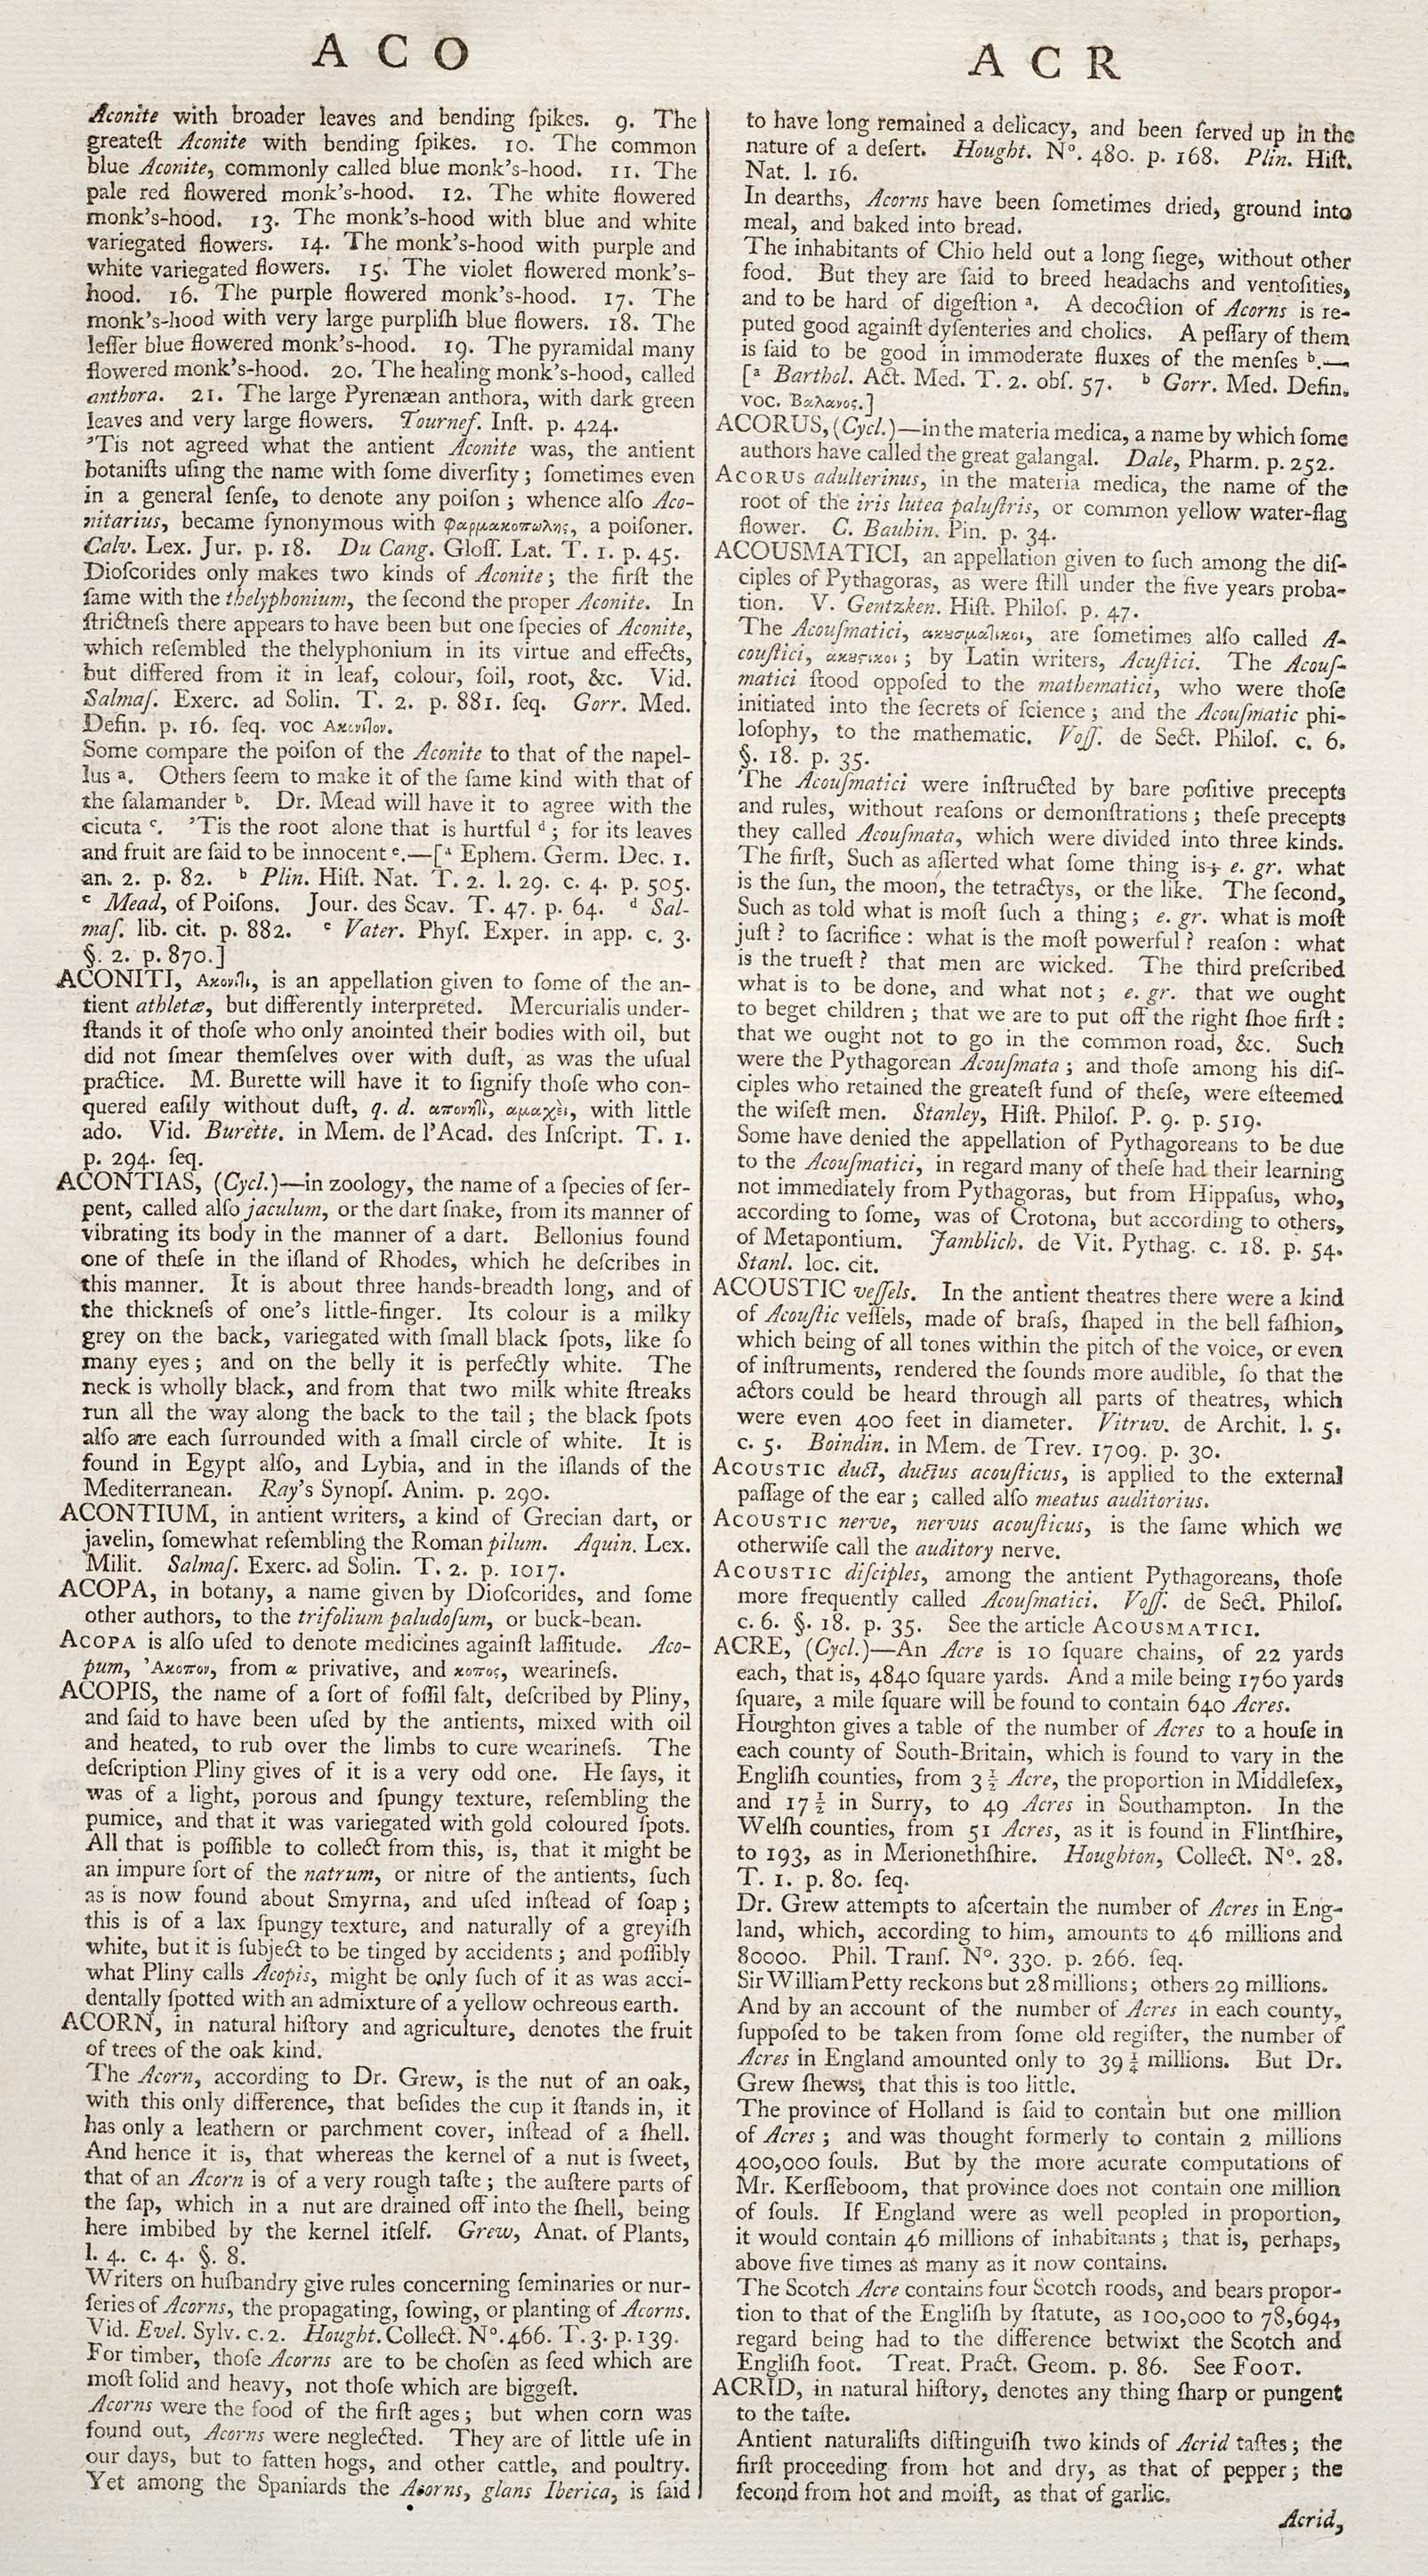 A C O
Aconite with broader leaves and bending ſpikes. 9. The
greateſt Aconite with bending ſpikes. 10. The common
blue Aconite, commonly called blue monk's-hood. 11. The
pale red flowered monk's-hood. 12. The white flowered
monk's-hood. 13. The monk's-hood with blue and white
variegated flowers. 14. The monk's-hood with purple and
white variegated flowers. 15. The violet flowered monk's-
hood. 16. The purple flowered monk's-hood. 17. The
monk's-hood with very large purpliſh blue flowers. 18. The
leſſer blue flowered monk's-hood. 19. The pyramidal many
flowered monk's-hood. 20. The healing monk's-hood, called
anthora. 21. The large Pyrenæan anthora, with dark green
leaves and very large flowers. Tournef. Inſt. p. 424.
'Tis not agreed what the antient Aconite was, the antient
botaniſts uſing the name with ſome diverſity; ſometimes even
in a general ſenſe, to denote any poiſon; whence alſo Aco-
nitarius, became ſynonymous with φαρμακοπωλης, a poiſoner.
Calv. Lex. Jur. p. 18. Du Cang. Gloſſ. Lat. T. 1. p. 45.
Dioſcorides only makes two kinds of Aconite; the firſt the
ſame with the thelyphonium, the ſecond the proper Aconite. In
ſtrictneſs there appears to have been but one ſpecies of Aconite,
which reſembled the thelyphonium in its virtue and effects,
but differed from it in leaf, colour, ſoil, root, &c. Vid.
Salmaſ. Exerc. ad Solin. T. 2. p. 881. ſeq. Gorr. Med.
Defin. p. 16. ſeq. voc Ακονιτον.
Some compare the poiſon of the Aconite to that of the napel-
lus ᵃ. Others ſeem to make it of the ſame kind with that of
the ſalamander ᵇ. Dr. Mead will have it to agree with the
cicuta ᶜ. 'Tis the root alone that is hurtful ᵈ; for its leaves
and fruit are ſaid to be innocent ᵉ.—[ᵃ Ephem. Germ. Dec. 1.
an. 2. p. 82. ᵇ Plin. Hiſt. Nat. T. 2. l. 29. c. 4. p. 505.
ᶜ Mead, of Poiſons. Jour. des Scav. T. 47. p. 64. ᵈ Sal-
maſ. lib. cit. p. 882. ᵉ Vater. Phyſ. Exper. in app. c. 3.
§. 2. p. 870.]
ACONITI, Ακονιτι, is an appellation given to ſome of the an-
tient athletæ, but differently interpreted. Mercurialis under-
ſtands it of thoſe who only anointed their bodies with oil, but
did not ſmear themſelves over with duſt, as was the uſual
practice. M. Burette will have it to ſignify thoſe who con-
quered eaſily without duſt, q. d. απονητι, αμαχει, with little
ado. Vid. Burette. in Mem. de l'Acad. des Inſcript. T. 1.
p. 294. ſeq.
ACONTIAS, (Cycl.)—in zoology, the name of a ſpecies of ſer-
pent, called alſo jaculum, or the dart ſnake, from its manner of
vibrating its body in the manner of a dart. Bellonius found
one of theſe in the iſland of Rhodes, which he deſcribes in
this manner. It is about three hands-breadth long, and of
the thickneſs of one's little-finger. Its colour is a milky
grey on the back, variegated with ſmall black ſpots, like ſo
many eyes; and on the belly it is perfectly white. The
neck is wholly black, and from that two milk white ſtreaks
run all the way along the back to the tail; the black ſpots
alſo are each ſurrounded with a ſmall circle of white. It is
found in Egypt alſo, and Lybia, and in the iſlands of the
Mediterranean. Ray's Synopſ. Anim. p. 290.
ACONTIUM, in antient writers, a kind of Grecian dart, or
javelin, ſomewhat reſembling the Roman pilum. Aquin. Lex.
Milit. Salmaſ. Exerc. ad Solin. T. 2. p. 1017.
ACOPA, in botany, a name given by Dioſcorides, and ſome
other authors, to the trifolium paludoſum, or buck-bean.
ACOPA is alſo uſed to denote medicines againſt laſſitude. Aco-
pum, 'Ακοπον, from α privative, and κοπος, wearineſs.
ACOPIS, the name of a ſort of foſſil ſalt, deſcribed by Pliny,
and ſaid to have been uſed by the antients, mixed with oil
and heated, to rub over the limbs to cure wearineſs. The
deſcription Pliny gives of it is a very odd one. He ſays, it
was of a light, porous and ſpungy texture, reſembling the
pumice, and that it was variegated with gold coloured ſpots.
All that is poſſible to collect from this, is, that it might be
an impure ſort of the natrum, or nitre of the antients, ſuch
as is now found about Smyrna, and uſed inſtead of ſoap;
this is of a lax ſpungy texture, and naturally of a greyiſh
white, but it is ſubject to be tinged by accidents; and poſſibly
what Pliny calls Acopis, might be only ſuch of it as was acci-
dentally ſpotted with an admixture of a yellow ochreous earth.
ACORN, in natural hiſtory and agriculture, denotes the fruit
of trees of the oak kind.
The Acorn, according to Dr. Grew, is the nut of an oak,
with this only difference, that beſides the cup it ſtands in, it
has only a leathern or parchment cover, inſtead of a ſhell.
And hence it is, that whereas the kernel of a nut is ſweet,
that of an Acorn is of a very rough taſte; the auſtere parts of
the ſap, which in a nut are drained off into the ſhell, being
here imbibed by the kernel itſelf. Grew, Anat. of Plants,
l. 4. c. 4. §. 8.
Writers on huſbandry give rules concerning ſeminaries or nur-
ſeries of Acorns, the propagating, ſowing, or planting of Acorns.
Vid. Evel. Sylv. c. 2. Hought. Collect. Nº. 466. T. 3. p. 139.
For timber, thoſe Acorns are to be choſen as ſeed which are
moſt ſolid and heavy, not thoſe which are biggeſt.
Acorns were the food of the firſt ages; but when corn was
found out, Acorns were neglected. They are of little uſe in
our days, but to fatten hogs, and other cattle, and poultry.
Yet among the Spaniards the Acorns, glans Iberica, is ſaid
A C R
to have long remained a delicacy, and been ſerved up in the
nature of a deſert. Hought. Nº. 480. p. 168. Plin. Hiſt.
Nat. l. 16.
In dearths, Acorns have been ſometimes dried, ground into
meal, and baked into bread.
The inhabitants of Chio held out a long ſiege, without other
food. But they are ſaid to breed headachs and ventoſities,
and to be hard of digeſtion ᵃ. A decoction of Acorns is re-
puted good againſt dyſenteries and cholics. A peſſary of them
is ſaid to be good in immoderate fluxes of the menſes ᵇ.—
[ᵃ Barthol. Act. Med. T. 2. obſ. 57. ᵇ Gorr. Med. Defin.
voc. Βαλανος.]
ACORUS, (Cycl.)—in the materia medica, a name by which ſome
authors have called the great galangal. Dale, Pharm. p. 252.
ACORUS adulterinus, in the materia medica, the name of the
root of the iris lutea paluſtris, or common yellow water-flag
flower. C. Bauhin. Pin. p. 34.
ACOUSMATICI, an appellation given to ſuch among the diſ-
ciples of Pythagoras, as were ſtill under the five years proba-
tion. V. Gentzken. Hiſt. Philoſ. p. 47.
The Acouſmatici, ακουσματικοι, are ſometimes alſo called A-
couſtici, ακουστικοι; by Latin writers, Acuſtici. The Acouſ-
matici ſtood oppoſed to the mathematici, who were thoſe
initiated into the ſecrets of ſcience; and the Acouſmatic phi-
loſophy, to the mathematic. Voſſ. de Sect. Philoſ. c. 6.
§. 18. p. 35.
The Acouſmatici were inſtructed by bare poſitive precepts
and rules, without reaſons or demonſtrations; theſe precepts
they called Acouſmata, which were divided into three kinds.
The firſt, Such as aſſerted what ſome thing is; e. gr. what
is the ſun, the moon, the tetractys, or the like. The ſecond,
Such as told what is moſt ſuch a thing; e. gr. what is moſt
juſt? to ſacrifice: what is the moſt powerful? reaſon: what
is the trueſt? that men are wicked. The third preſcribed
what is to be done, and what not; e. gr. that we ought
to beget children; that we are to put off the right ſhoe firſt:
that we ought not to go in the common road, &c. Such
were the Pythagorean Acouſmata; and thoſe among his diſ-
ciples who retained the greateſt fund of theſe, were eſteemed
the wiſeſt men. Stanley, Hiſt. Philoſ. P. 9. p. 519.
Some have denied the appellation of Pythagoreans to be due
to the Acouſmatici, in regard many of theſe had their learning
not immediately from Pythagoras, but from Hippaſus, who,
according to ſome, was of Crotona, but according to others,
of Metapontium. Jamblich. de Vit. Pythag. c. 18. p. 54.
Stanl. loc. cit.
ACOUSTIC veſſels. In the antient theatres there were a kind
of Acouſtic veſſels, made of braſs, ſhaped in the bell faſhion,
which being of all tones within the pitch of the voice, or even
of inſtruments, rendered the ſounds more audible, ſo that the
actors could be heard through all parts of theatres, which
were even 400 feet in diameter. Vitruv. de Archit. l. 5.
c. 5. Boindin. in Mem. de Trev. 1709. p. 30.
ACOUSTIC duct, ductus acouſticus, is applied to the external
paſſage of the ear; called alſo meatus auditorius.
ACOUSTIC nerve, nervus acouſticus, is the ſame which we
otherwiſe call the auditory nerve.
ACOUSTIC diſciples, among the antient Pythagoreans, thoſe
more frequently called Acouſmatici. Voſſ. de Sect. Philoſ.
c. 6. §. 18. p. 35. See the article ACOUSMATICI.
ACRE, (Cycl.)—An Acre is 10 ſquare chains, of 22 yards
each, that is, 4840 ſquare yards. And a mile being 1760 yards
ſquare, a mile ſquare will be found to contain 640 Acres.
Houghton gives a table of the number of Acres to a houſe in
each county of South-Britain, which is found to vary in the
Engliſh counties, from 3 ½ Acre, the proportion in Middleſex,
and 17 ½ in Surry, to 49 Acres in Southampton. In the
Welſh counties, from 51 Acres, as it is found in Flintſhire,
to 193, as in Merionethſhire. Houghton, Collect. Nº. 28.
T. 1. p. 80. ſeq.
Dr. Grew attempts to aſcertain the number of Acres in Eng-
land, which, according to him, amounts to 46 millions and
80000. Phil. Tranſ. Nº. 330. p. 266. ſeq.
Sir William Petty reckons but 28 millions; others 29 millions.
And by an account of the number of Acres in each county,
ſuppoſed to be taken from ſome old regiſter, the number of
Acres in England amounted only to 39 ¼ millions. But Dr.
Grew ſhews, that this is too little.
The province of Holland is ſaid to contain but one million
of Acres; and was thought formerly to contain 2 millions
400,000 ſouls. But by the more acurate computations of
Mr. Kerſſeboom, that province does not contain one million
of ſouls. If England were as well peopled in proportion,
it would contain 46 millions of inhabitants; that is, perhaps,
above five times as many as it now contains.
The Scotch Acre contains four Scotch roods, and bears propor-
tion to that of the Engliſh by ſtatute, as 100,000 to 78,694,
regard being had to the difference betwixt the Scotch and
Engliſh foot. Treat. Pract. Geom. p. 86. See FOOT.
ACRID, in natural hiſtory, denotes any thing ſharp or pungent
to the taſte.
Antient naturaliſts diſtinguiſh two kinds of Acrid taſtes; the
firſt proceeding from hot and dry, as that of pepper; the
ſecond from hot and moiſt, as that of garlic.
Acrid,